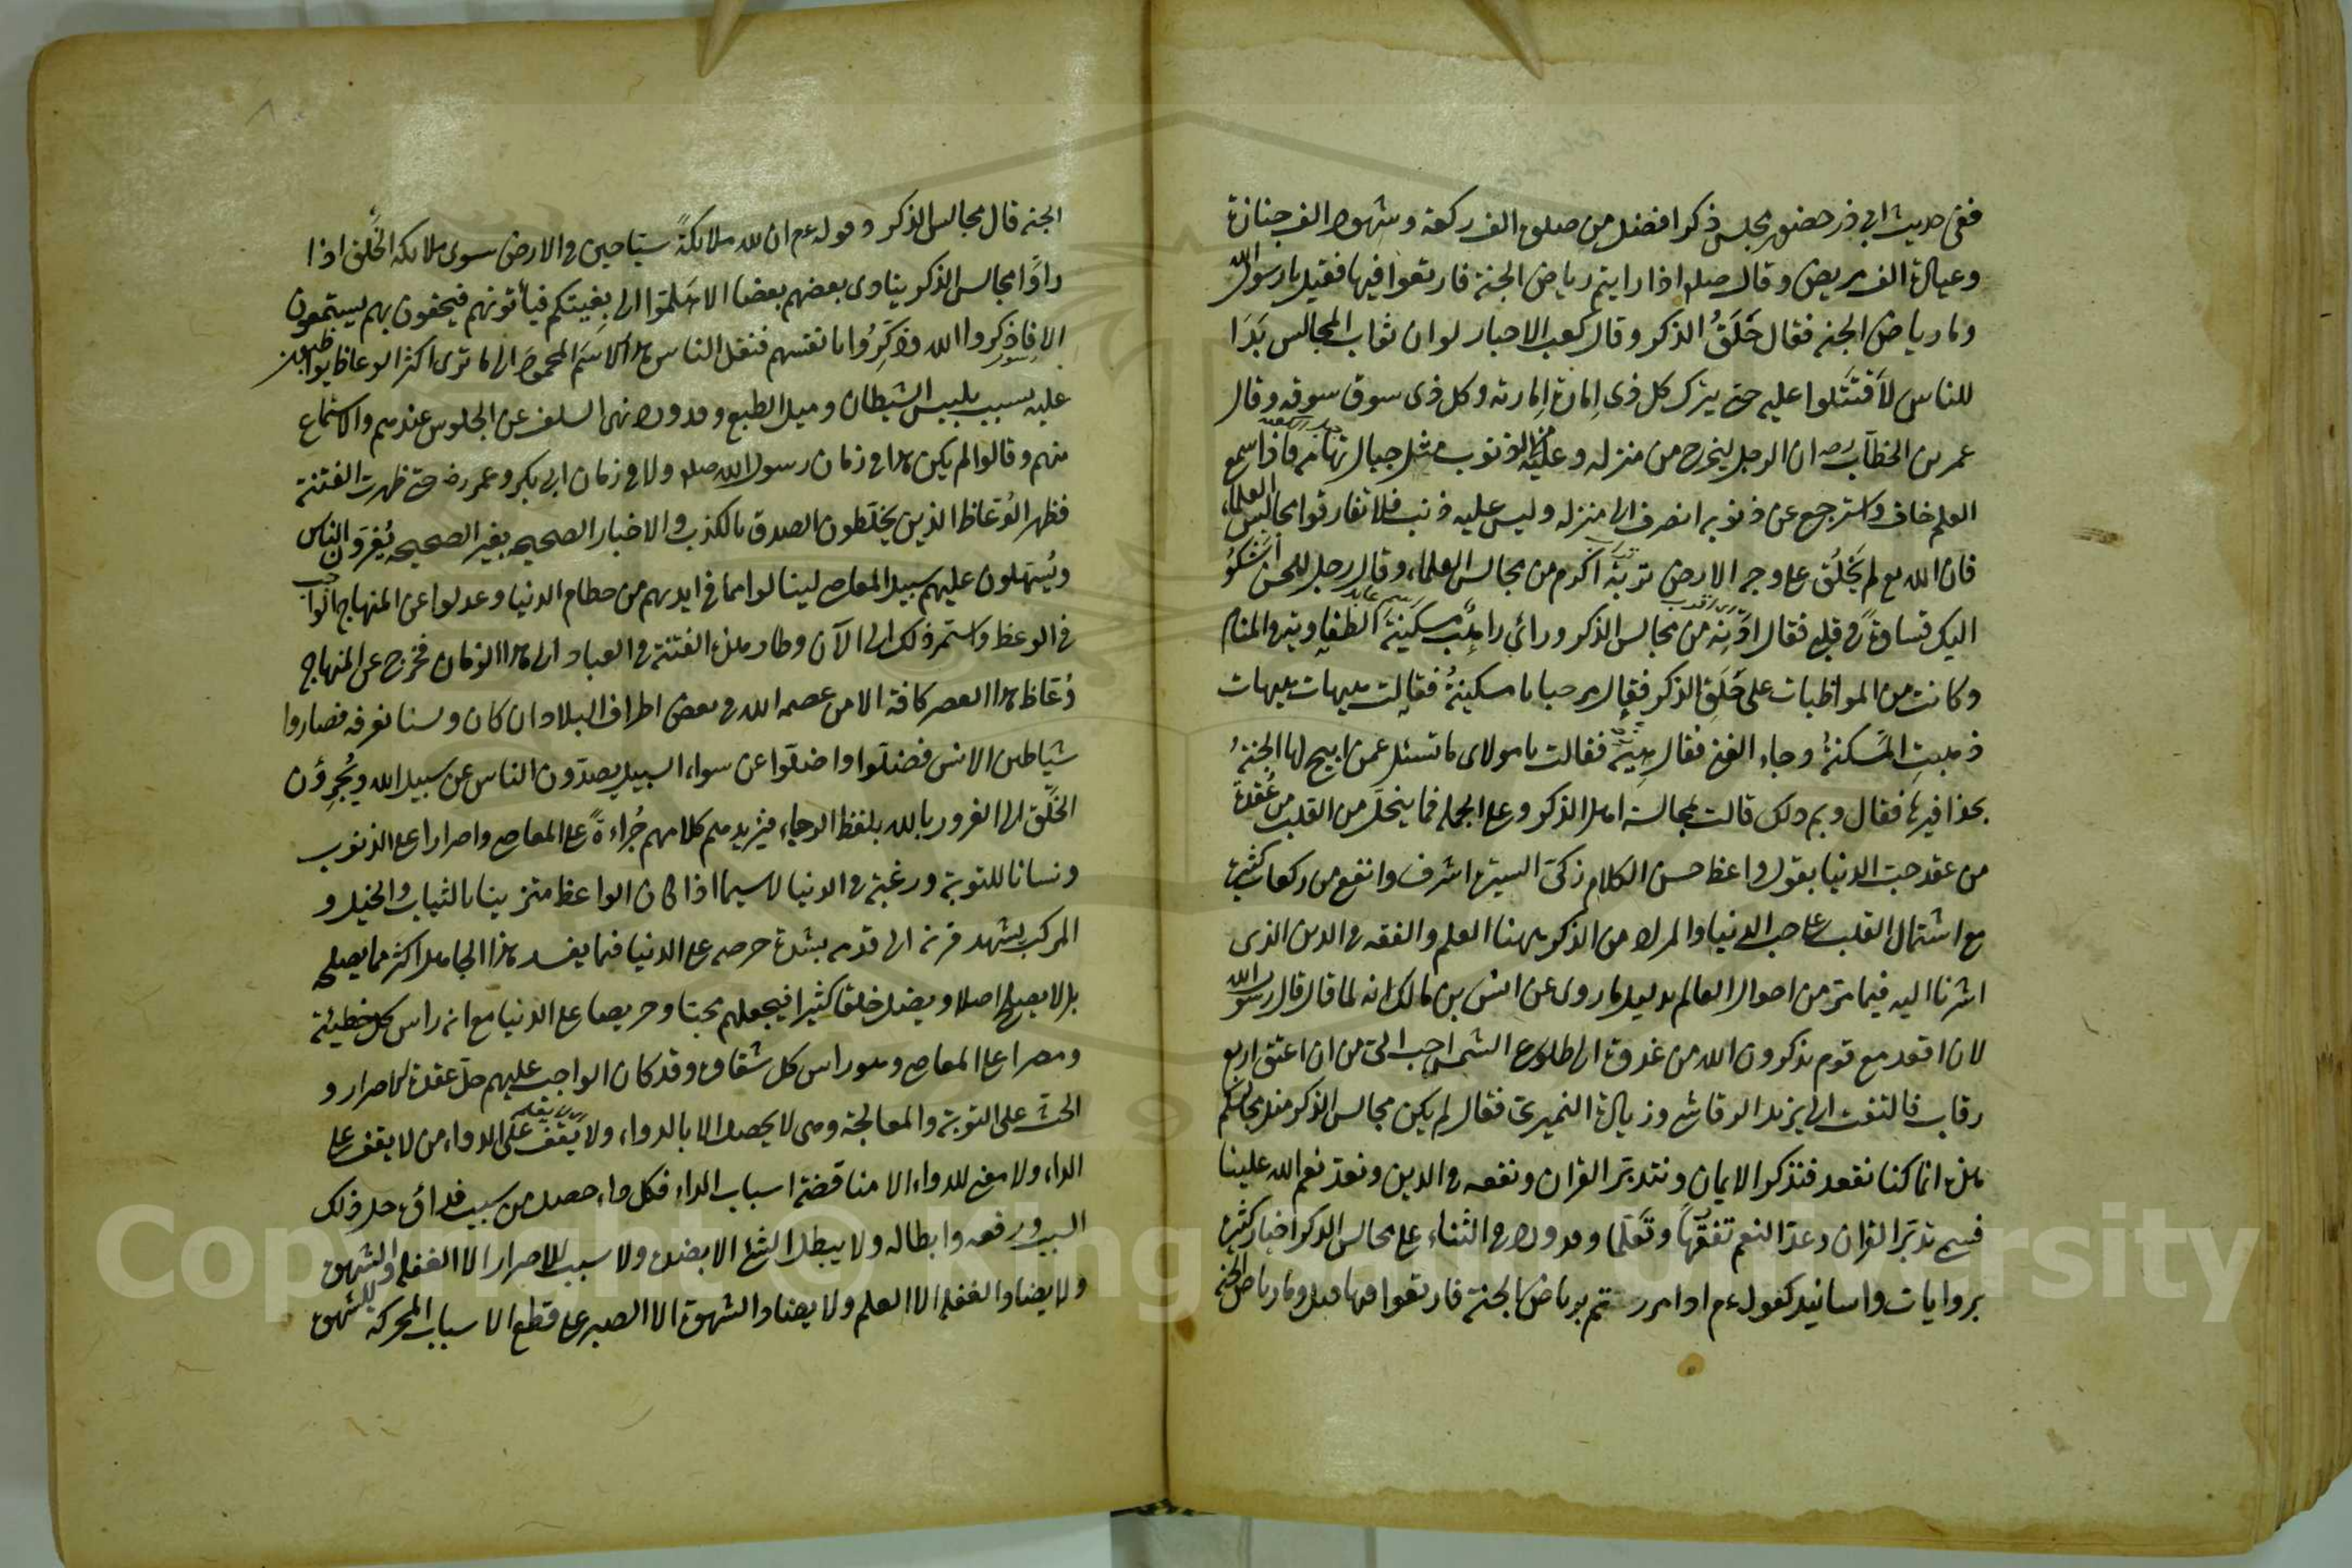 ففى حديث ابى ذر حضور مجلس ذكر افضل من صلوة الف ركعة وشهود الف جنازة
وعيادة الف مريض وقال صلم اذا رايتم رياض الجنة فارتعوا فيها فقيل يا رسول الله
وما رياض الجنه فقال حَلَقُ الذكر وقال كعب الاحبار لو ان ثواب المجالس بَدَا
للناس لاَقْتَتَلوا عليه حتى يترك كل ذى اِمارة اِمارته وكل ذى سوق سوقه وقال
عمر بن الخطاب رضه ان الرجل ليخرج من منزله وعليه من الذنوب مثل جبال تهامه فاذا سمع
العلم خاف واسترجع عن ذنوبه انصرف الى منزله وليس عليه ذنب فلا تفارقوا مجالس العلماء
فان الله تع لم يَخْلُق على وجه الارض تربة اكرم من مجالس العلماء وقال رجل للحسن اَشْكُوُ
اليك قساوةً فى قلبى فقال اَدْنِه من مجالس الذكر ورائى راهب مسكينةَ الطفاوية فى المنام
وكانت من المواظبات على حَلَقِ الذكر فقال مرحبا يا مسكينةُ فقالت هيهات هيهات
ذهبتِ المَسكنةُ وجاء الغنى فقال هِيهْ فقالت يا مولاى ما تسئل عمن ابيح لها الجنةُ
بحذافيرها فقال وبم ذلك قالت بمجالسة اهل الذكر وعلى الجمله فما ينحلّ من القلب من عُقْدة
من عقد حبّ الدنيا بقول واعظ حسن الكلام زكىّ السيرة اشرف وانفع من ركعات كثيرة
مع اشتمال القلب على حب الدنيا والمراد من الذكر ههنا العلم والفقه فى الدين الذى
اشرنا اليه فيما مرّ من احوال العالم بدليل ما روى عن انس بن مالك انه لما قال قال رسول الله
لان اقعد مع قوم يذكرون الله من غدوة الى طلوع الشمس احب الىّ من ان اعتق اربع
رقاب فالتفت الى يزيد الرقاشى وزياد النميرى فقال لم يكن مجالس الذكر مثل مجالسكم
هذه انما كنا نقعد فنذكر الايمان ونتدبّر القران ونتفقه فى الدين ونعدّ نعم الله علينا
فسمى تدبّر القران وعدّ النعم تفقّهاً وتعَلّما وقد ورد فى الثناء على مجالس الذكر اخبار كثيرة
بروايات واسانيد كقوله عم اذا مررتم برياض الجنة فارتعوا فيها قيل وما رياض الجنة
الجنه قال مجالس الذكر وقوله عم ان لله ملائكةً سيّاحين فى الارض سوى ملائكه الخَلق اذا
راَوْا مجالس الذكر ينادى بعضهم بعضا الا هَلُمّوا الى بِغيتكم فياْتونهم فيحفون بهم يستمعون
الا فاذكروا الله وذكِّرُوا بانفسهم فنقل الناس هذا الاسمَ المحمودَ الى ما ترى اكثر الوعاظ يواظبون
عليه بسبب تلبيس الشيطان وميل الطبع وقد ورد نهى السلف عن الجلوس عندهم والاستماع
منهم وقالوا لم يكن هذا فى زمان رسول الله صلم ولا فى زمان ابى بكر وعمر رضه حتى ظهرت الفتنة
فظهر الوُعّاظ الذين يخلّطون الصدق بالكذب والاخبار الصحيحه بغير الصحيحه يُغْرَون الناس
ويُسهّلون عليهم سبيل المعاصى لينالوا مما فى ايديهم من حطام الدنيا وعدلوا عن المنهاج الواجب
فى الوعظ واستمر ذلك الى الآن وطار هذه الفتنة فى العباد الى هذا الزمان فخرج عن المنهاج
وُعّاظ هذا العصر كافة الا من عصمه الله فى بعض اطراف البلاد ان كان ولسنا نعرفه فصاروا
شياطين الانس فضلّوا واضلّوا عن سواء السبيل يصدّون الناس عن سبيل الله ويُجرِؤُن
الخَلْق الى الغرور بالله بلفظ الرجاء فيزيدهم كلامهم جُراءةً على المعاصى واصرارا على الذنوب
ونسيانا للتوبة ورغبة فى الدنيا لا سيما اذا كان الواعظ متزينا بالثياب والخيل و
المركب يشهد قرنه الى قدمه بشدة حرصه على الدنيا فما يفسد هذا الجاهل اكثر مما يصلحه
بل لا يصلح اصلا ويضل خلقا كثيرا فيجعلهم محبّا وحريصا على الدنيا مع انه راس كل خطيئة
ومصرا على المعاصى وهو راس كل شقاوة وقد كان الواجب عليهم حلّ عقدة الاصرار و
الحثّ على التوبة والمعالجة وهى لا يحصل الا بالدواء ولا يَقف على الدواء من لا يقف على
الداء ولا معنى للدواء الا مناقضة اسباب الداء فكل داء حصل من سبب فدواؤه حل ذلك
السبب ورفعه وابطاله ولا يبطل الشئ الا بضده ولا سبب للاصرار الا الغفلة والشهوة
ولا يضاد الغفلة الا العلم ولا يضاد الشهوة الا الصبر على قطع الاسباب المحركة للشهوة
Copyright © King Saud University